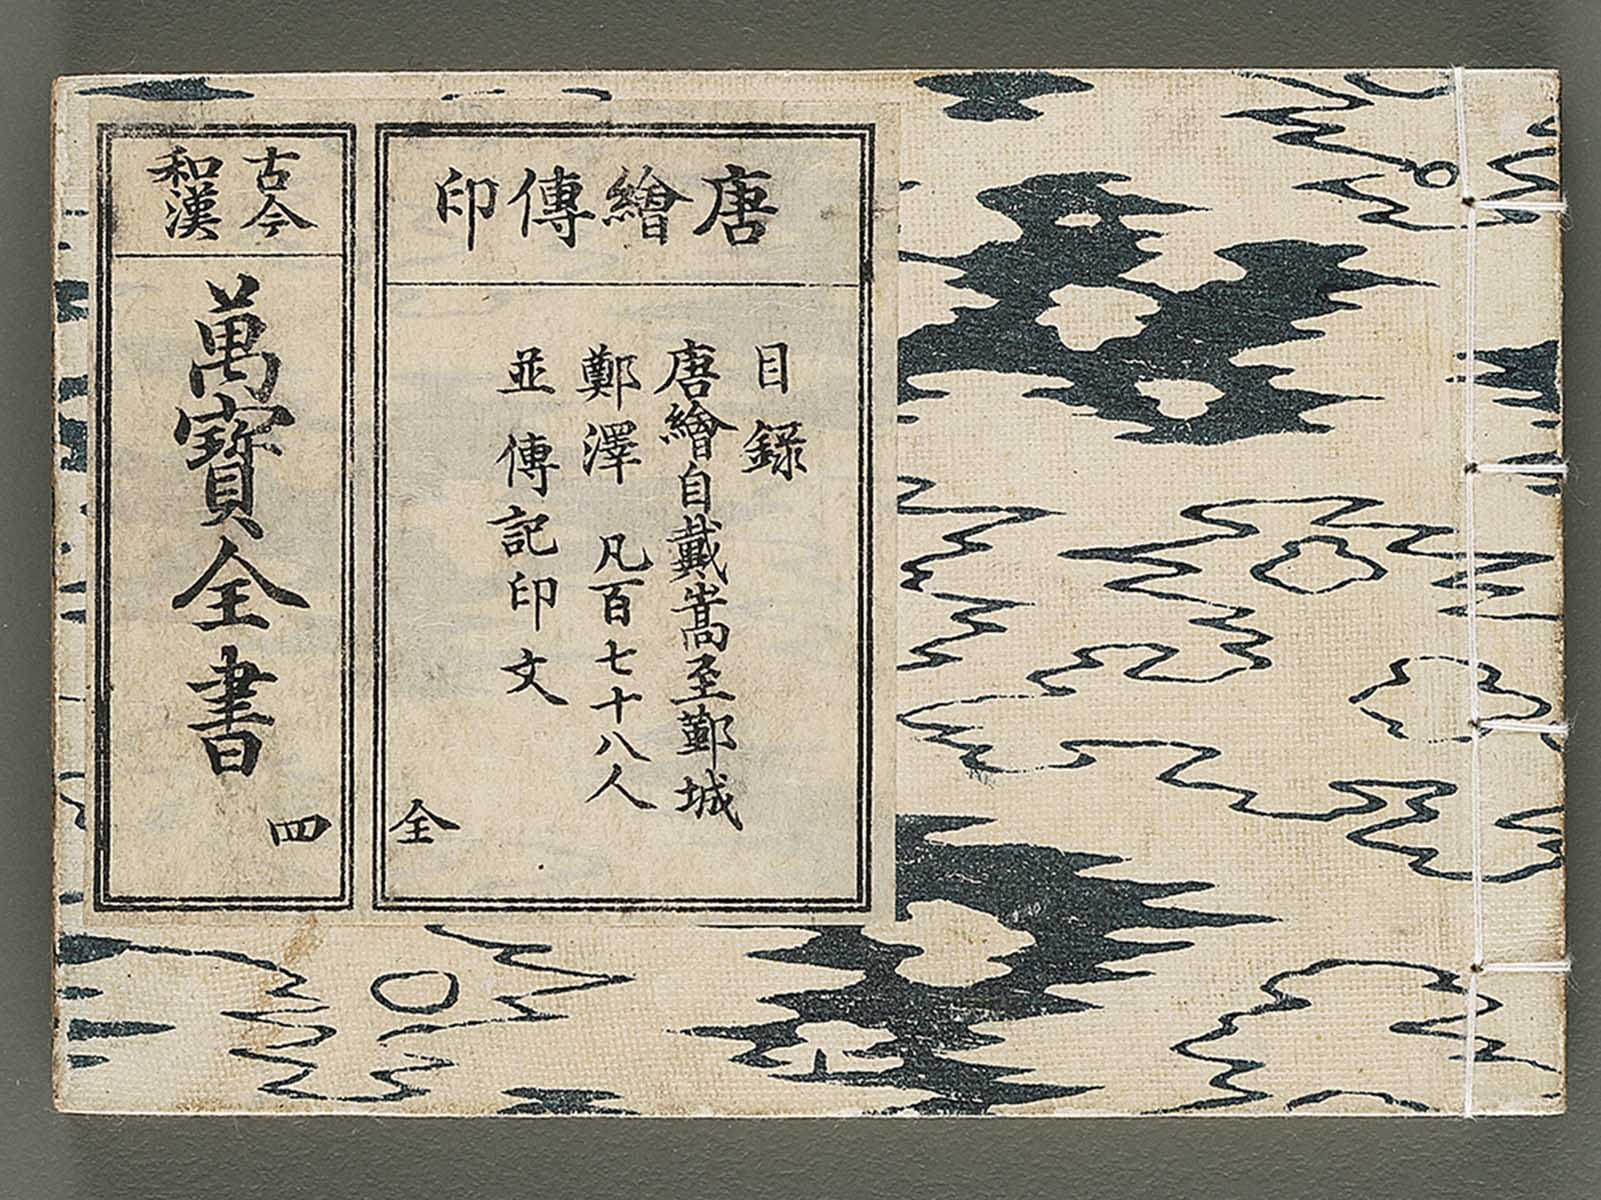 唐繪傳印
目録
唐繪自戴嵩至鄞城
鄭澤 凡百七十八人
並傳記印文
全
古今
和漢
萬寳全書
四